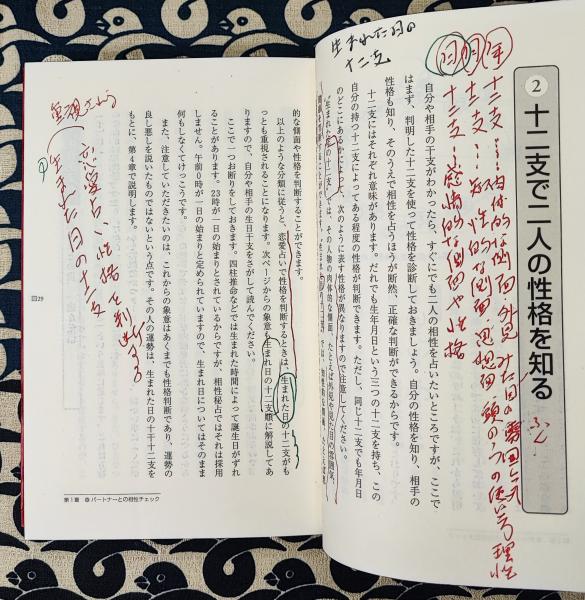 ② 十二支で二人の性格を知る
自分や相手の干支がわかったら、すぐにでも二人の相性を占いたいところですが、ここで
はまず、判明した十二支を使って性格を診断しておきましょう。自分の性格を知り、相手の
性格も知り、そのうえで相性を占うほうが断然、正確な判断ができるからです。
十二支にはそれぞれ意味があります。だれでも生年月日という三つの十二支を持ち、この
自分の持つ十二支によってある程度の性格が判断できます。ただし、同じ十二支でも年月日
のどこにあるかによって、次のように表す性格が異なりますので注意してください。
生まれた日の
十二支
年 十二支
月 十二支
日 十二支
的な側面や性格を判断することができます。
以上のような分類に従うと、恋愛占いで性格を判断するときは、生まれた日の十二支がも
っとも重視されることになります。次ページからの象意も生まれ日の十二支順に解説してあ
りますので、自分や相手の生日干支をさがして読んでください。
ここで一つお断りをしておきます。四柱推命などでは生まれた時間によって誕生日がずれ
ることがあります。23時が一日の始まりとされているからですが、相性秘占ではそれは採用
しません。午前0時が一日の始まりと定められていますので、生まれ日についてはそのまま
何もしなくてけっこうです。
また、注意していただきたいのは、これからの象意はあくまでも性格判断であり、運勢の
良し悪しを説いたものではないという点です。その人の運勢は、生まれた日の十干十二支を
もとに、第4章で説明します。
恋愛占い性格を判断する
生まれた日の十二支
29
第1章 パートナーとの相性チェック